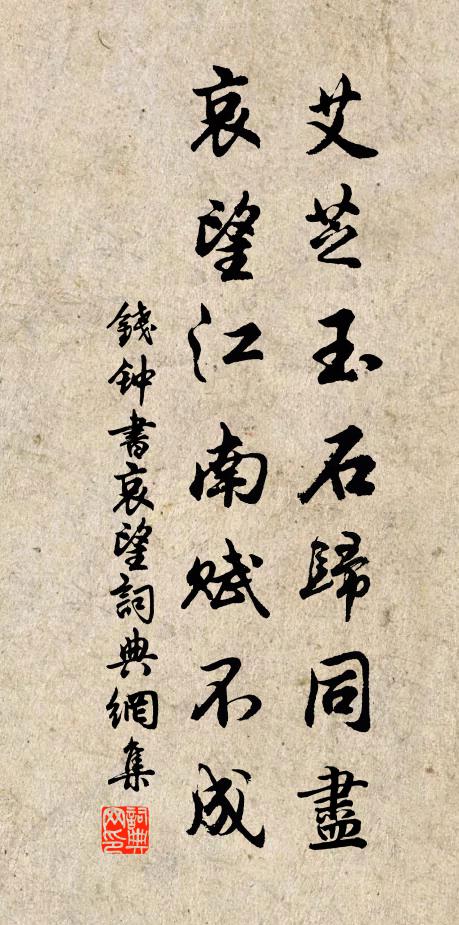 艾芝玉石歸同盡
哀望江南賦不成
錢鈡書哀望詞典網集
詞典
网印